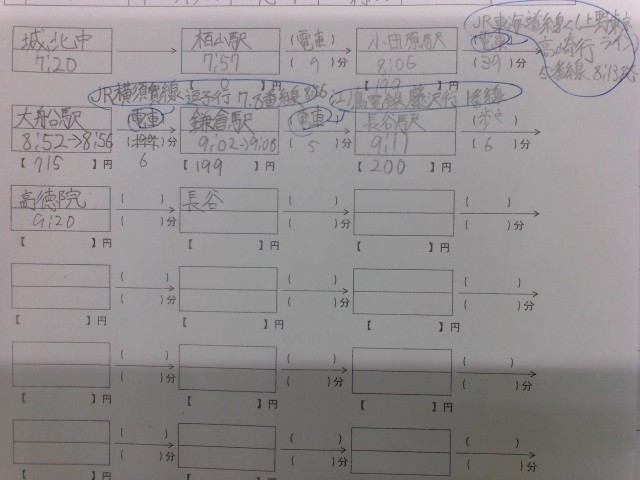 城北中
7:20
栢山駅
7:57
(電車)
( 9 )分
小田原駅
8:06
(電車)
(39)分
JR東海道本線(上野東京
ライン)
高崎行
8:13発
JR横須賀線 逗子行 7.8番線
江ノ島電鉄 藤沢行 1番線
大船駅
8:52→8:56
【 715 】円
(電車)
( )分
6
鎌倉駅
9:02→9:06
【 199 】円
(電車)
( 5 )分
長谷駅
9:11
【 200 】円
(歩き)
( 6 )分
高徳院
9:20
【 】円
( )
( )分
長谷
【 】円
( )
( )分
【 】円
( )
( )分
【 】円
( )
( )分
【 】円
( )
( )分
【 】円
( )
( )分
【 】円
( )
( )分
【 】円
( )
( )分
【 】円
( )
( )分
( )
( )分
( )
( )分
( )
( )分